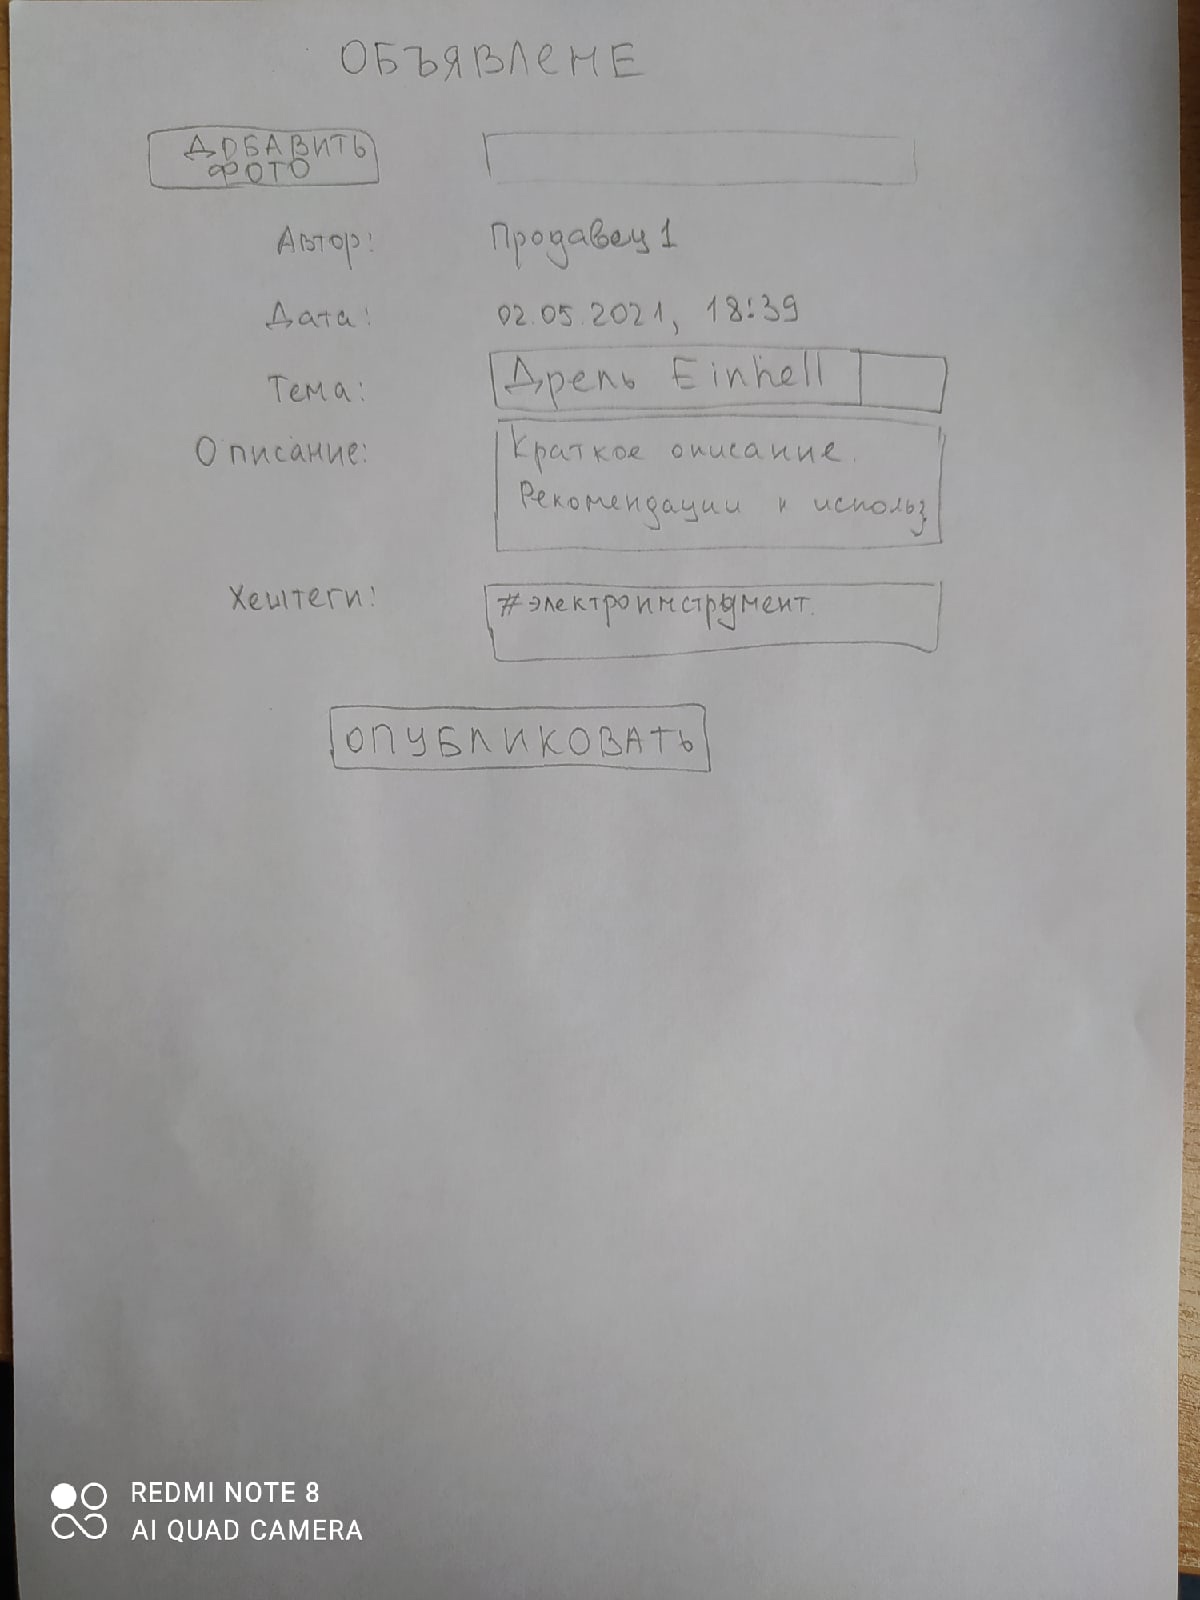 ОБЪЯВЛЕНЕ
ДОБАВИТЬ
ФОТО
Автор: Продавец 1
Дата: 02.05.2021, 18:39
Тема: Дрель Einhell
Описание: Краткое описание.
Рекомендации к использ
Хештеги: #электроинструмент.
ОПУБЛИКОВАТЬ
REDMI NOTE 8
AI QUAD CAMERA